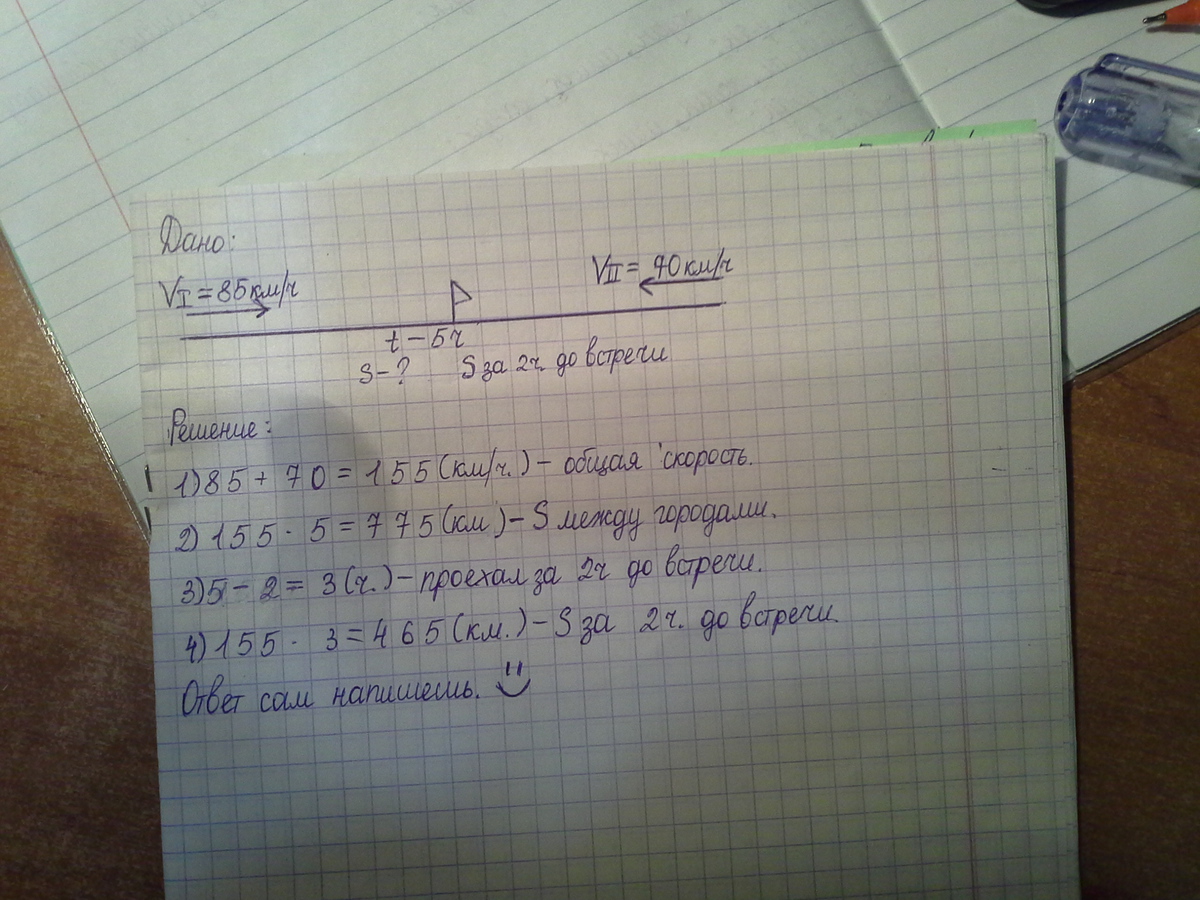 Дано:
VI = 85км/ч
VII = 70км/ч
t – 5ч
S – ? S за 2ч. до встречи
Решение:
1) 85 + 70 = 155 (км/ч.) – общая скорость.
2) 155 · 5 = 775 (км) – S между городами.
3) 5 – 2 = 3 (ч.) – проехал за 2ч до встречи.
4) 155 · 3 = 465 (км.) – S за 2ч. до встречи.
Ответ сам напишешь.